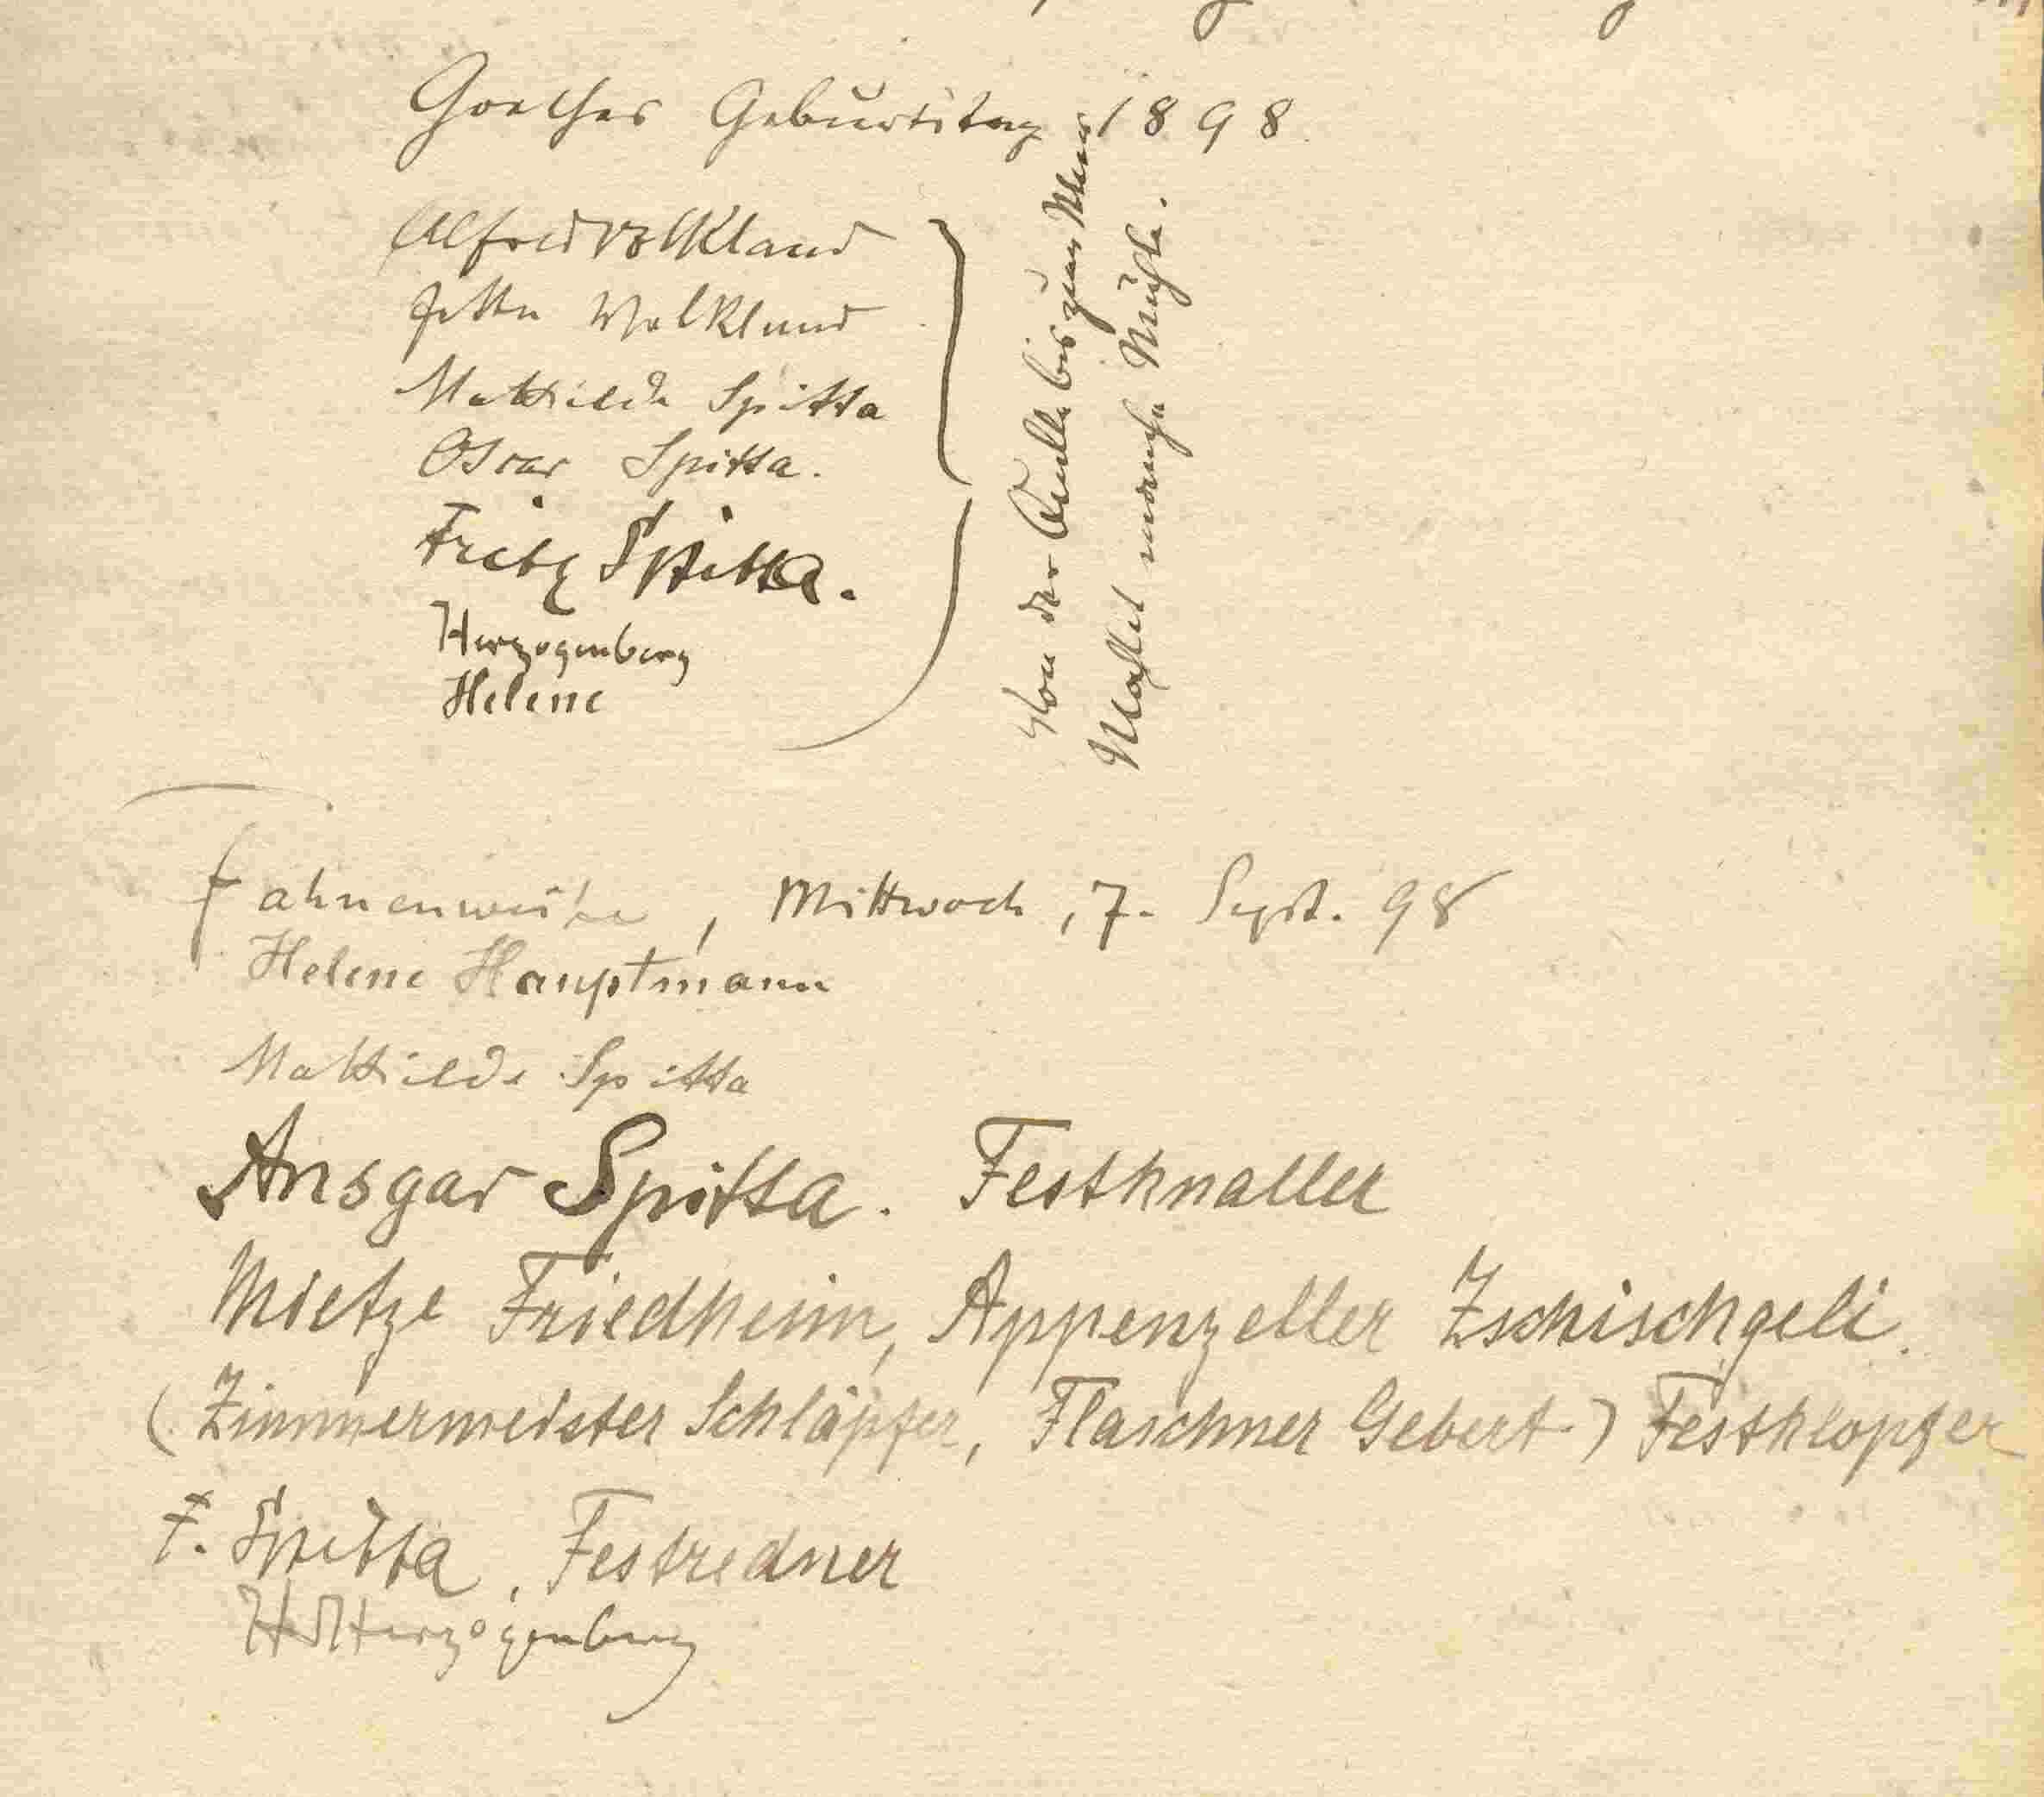 Goethes Geburtstag 1898.
Alfred Volkland
Jetta Volkland
Mathilde Spitta
Oscar Spitta.
Fritz Spitta.
Herzogenberg
Helene
Von der Quelle bis zum Meer
Mahlet manche Mühle.
Fahnenweihe, Mittwoch, 7. Sept. 98
Helene Hauptmann
Mathilde Spitta
Ansgar Spitta. Festknaller
Mietze Friedheim, Appenzeller Zschischgeli.
(Zimmermeister Schläpfer, Flaschner Gebert) Festklopfer
F. Spitta, Festredner
HvHerzogenberg